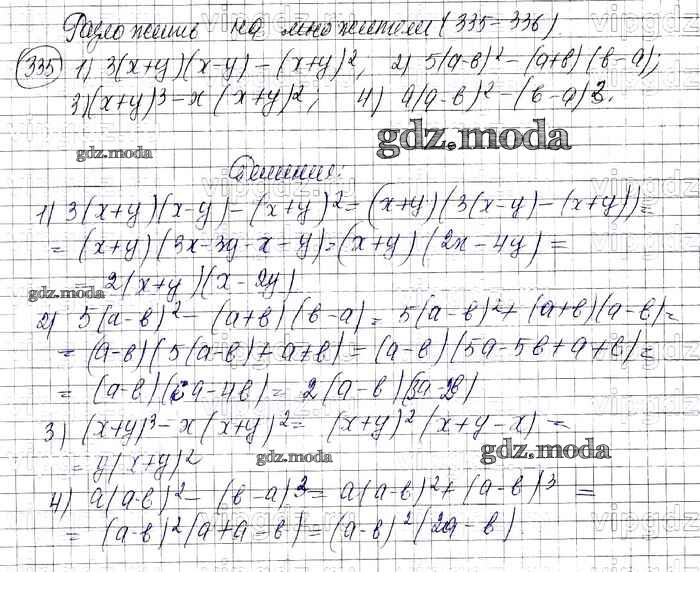 Разложение на множители (335-336)
335 1) 3(x+y)(x-y) - (x+y)², 2) 5(a-b)² - (a+b)(b-a);
3) (x+y)³ - x(x+y)²; 4) a(a-b)² - (b-a)3.
gdz.moda
gdz.moda
Решение:
1) 3(x+y)(x-y) - (x+y)² = (x+y)(3(x-y) - (x+y)) =
= (x+y)(3x-3y-x-y) = (x+y)(2x-4y) =
= 2(x+y)(x-2y)
gdz.moda
2) 5(a-b)² - (a+b)(b-a) = 5(a-b)² + (a+b)(a-b) =
= (a-b)(5(a-b)+a+b) = (a-b)(5a-5b+a+b) =
= (a-b)(6a-4b) = 2(a-b)(3a-2b)
3) (x+y)³ - x(x+y)² = (x+y)²(x+y-x) =
= y(x+y)²
gdz.moda
gdz.moda
4) a(a-b)² - (b-a)³ = a(a-b)² + (a-b)³ =
= (a-b)²(a+a-b) = (a-b)²(2a-b)